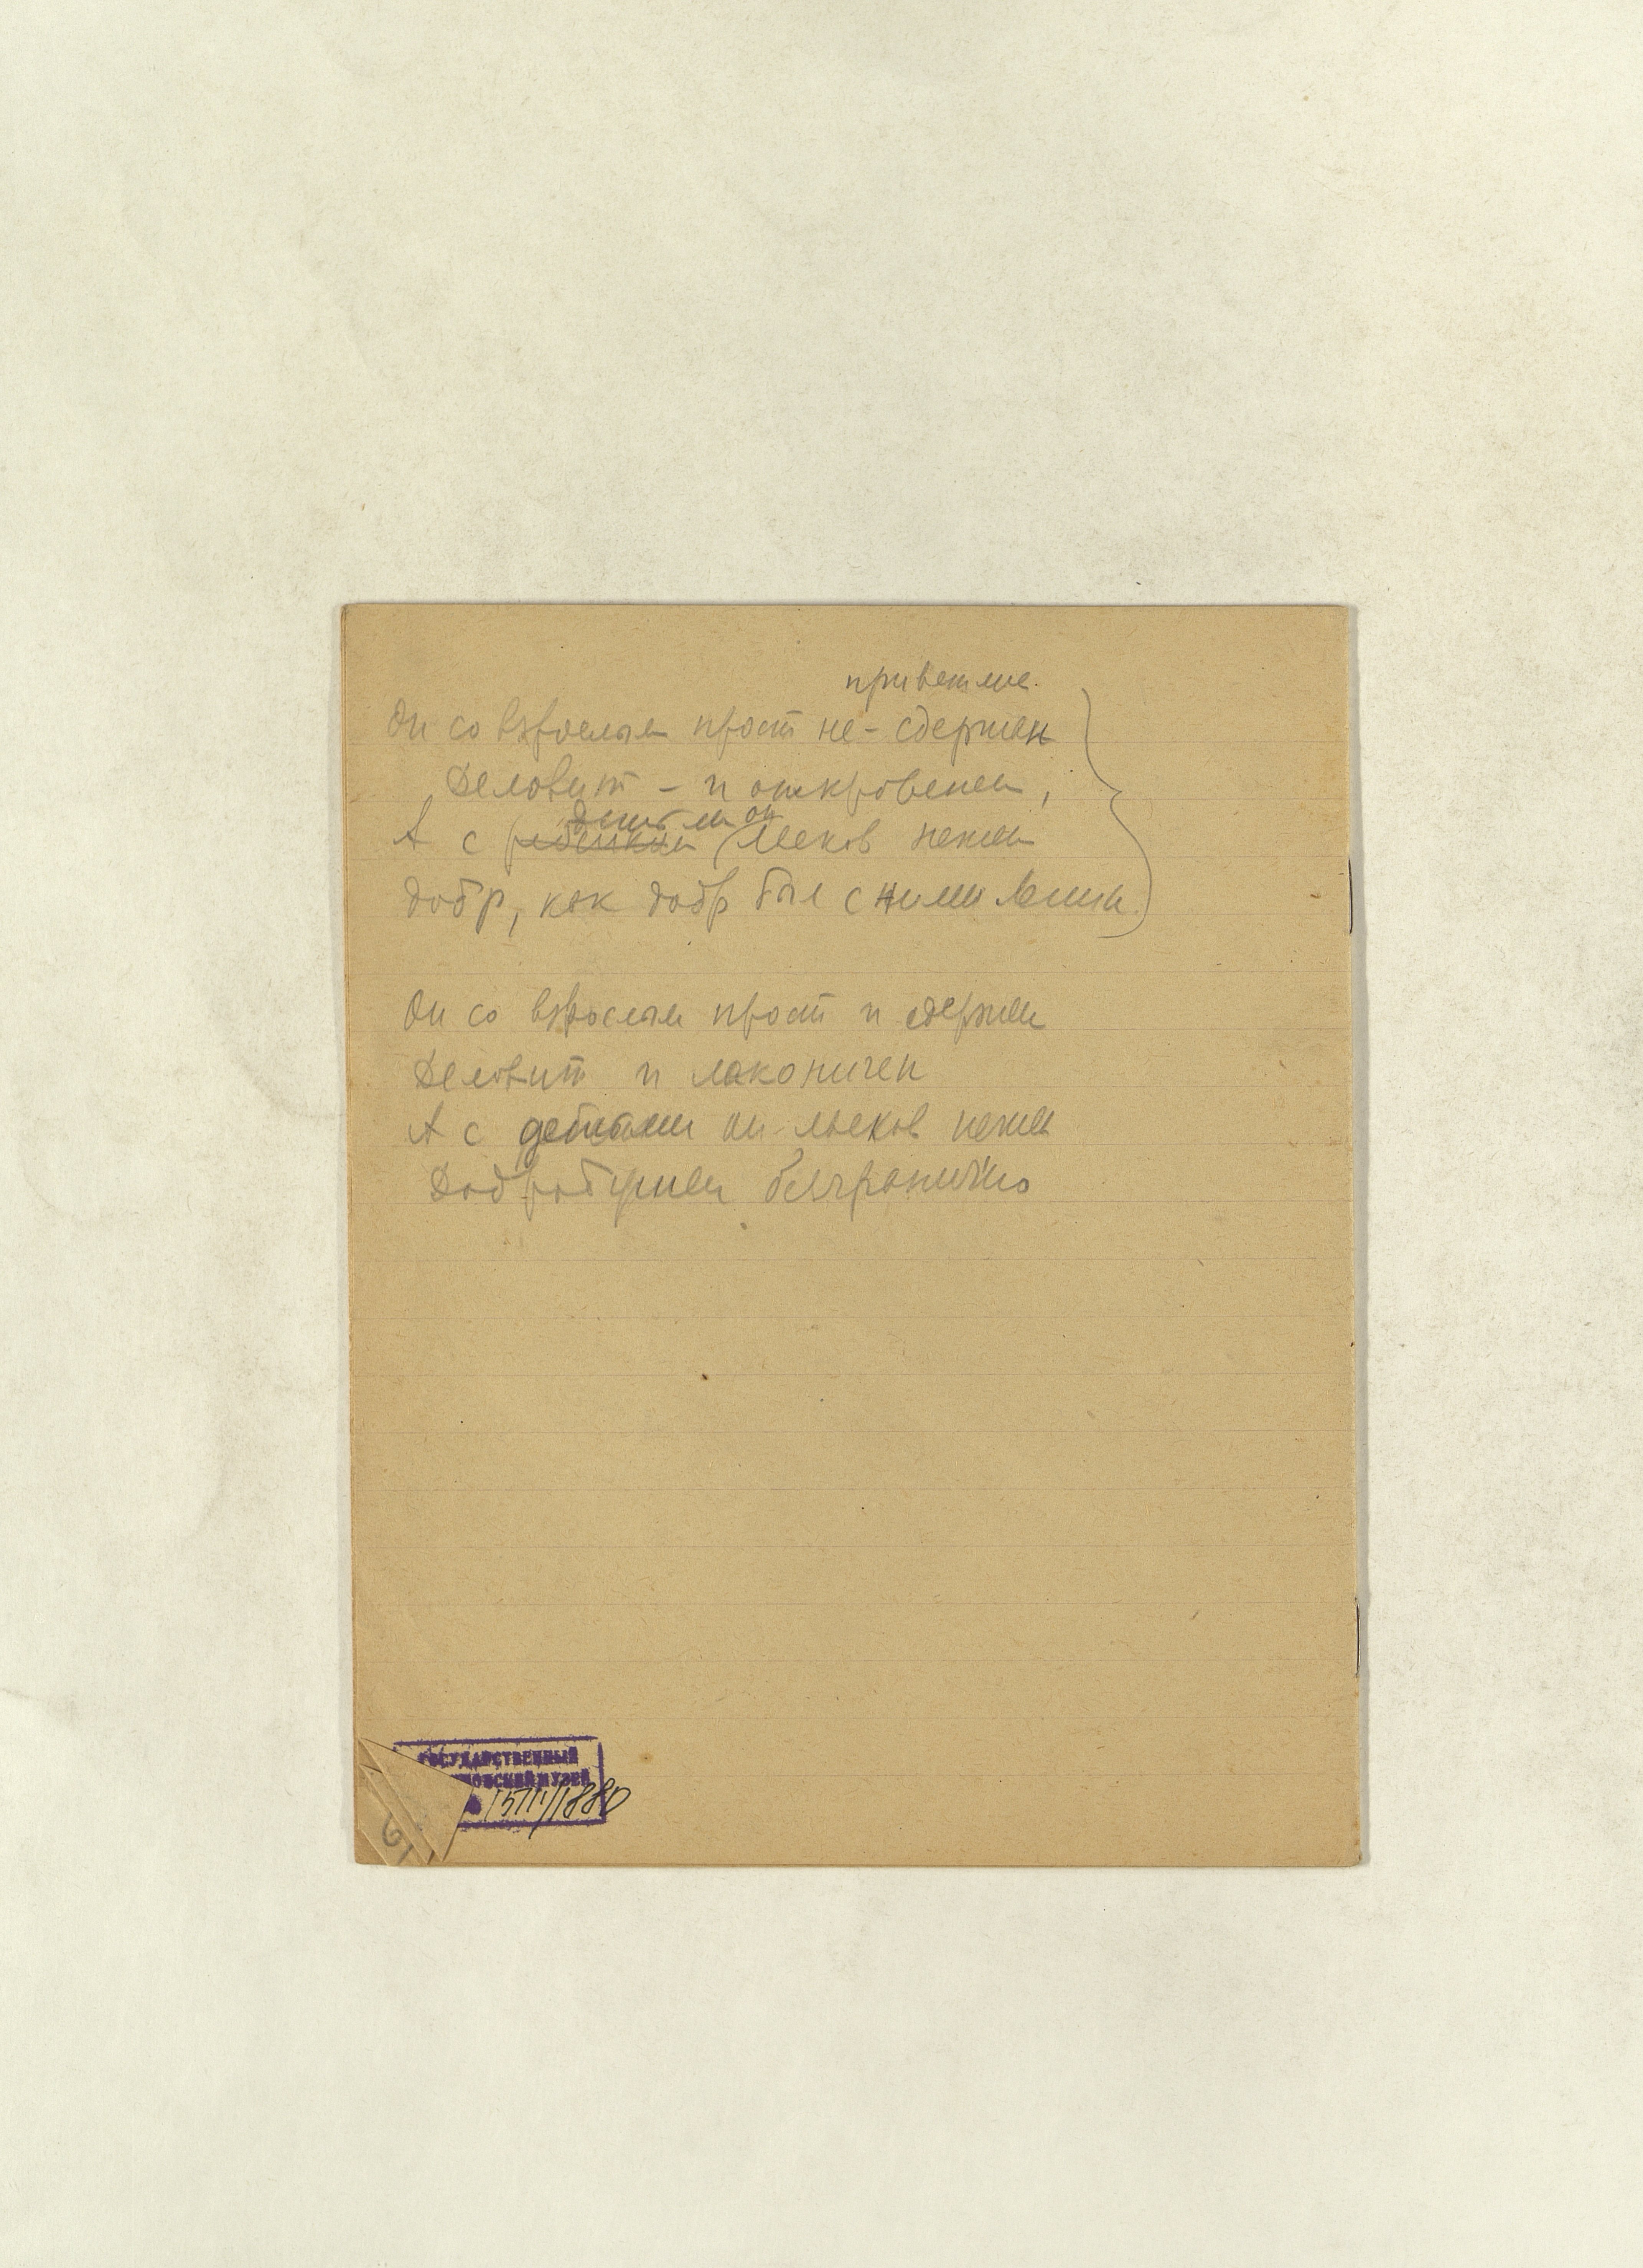 приветлив.
Он со взрослыми прост не-сдержан
Деловит - и откровенен,
детьми он
А с ребенком ласков нежен
добр, как добр был с ними Ленин.
Он со взрослыми прост и сдержан
Деловит и лаконичен
А с детьми он ласков нежен
Добродушен безгранично
ГОСУДАРСТВЕННЫЙ
МУЗЕЙ
1880
61